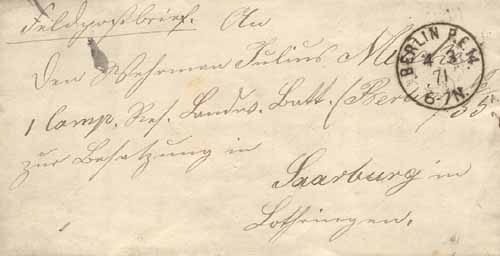 Feldpostbrief. An
Den Wehrman Julius
BERLIN P.E. 11.
4 3
71
6-7N.
1 Comp. Res. Landw. Batt. (Berl 35
zur Besatzung in
Saarburg in
Lothringen.